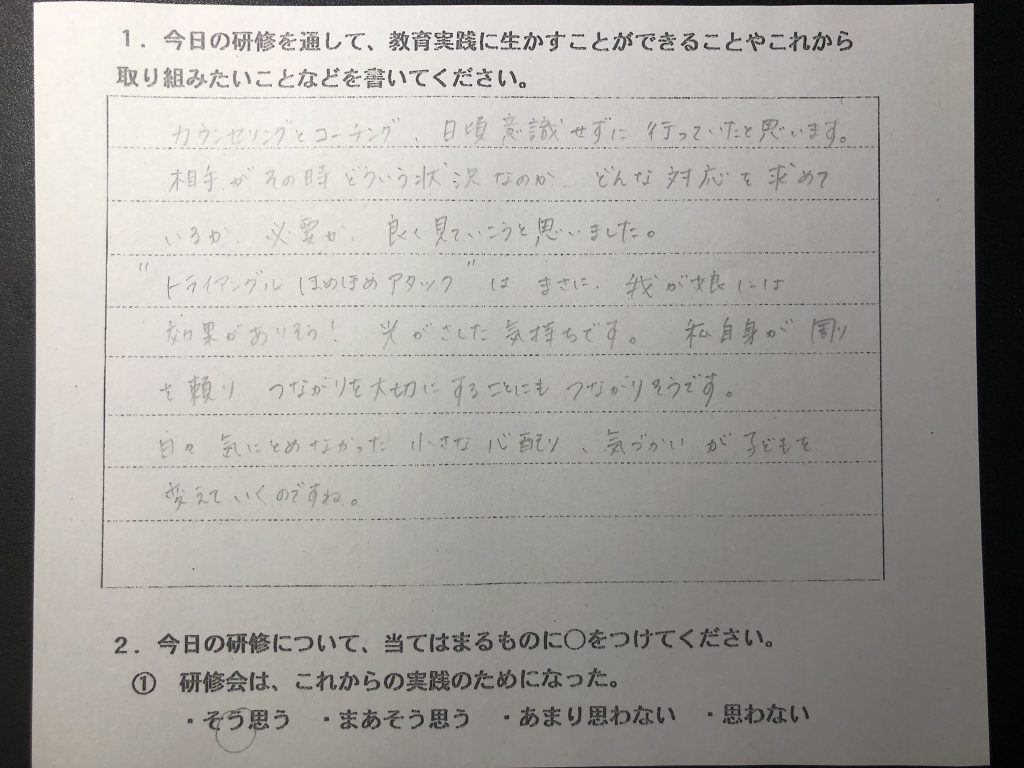 １．今日の研修を通して、教育実践に生かすことができることやこれから
取り組みたいことなどを書いてください。
カウンセリングとコーチング、日頃意識せずに行っていたと思います。
相手がその時どういう状況なのか、どんな対応を求めて
いるか、必要か、良く見ていこうと思いました。
"トライアングルほめほめアタック"はまさに、我が娘には
効果がありそう！光がさした気持ちです。私自身が周り
を頼り、つながりを大切にすることにもつながりそうです。
日々気にとめなかった小さな心配り、気づかいが子どもを
変えていくのですね。
２．今日の研修について、当てはまるものに〇をつけてください。
① 研修会は、これからの実践のためになった。
・そう思う ・まあそう思う ・あまり思わない ・思わない